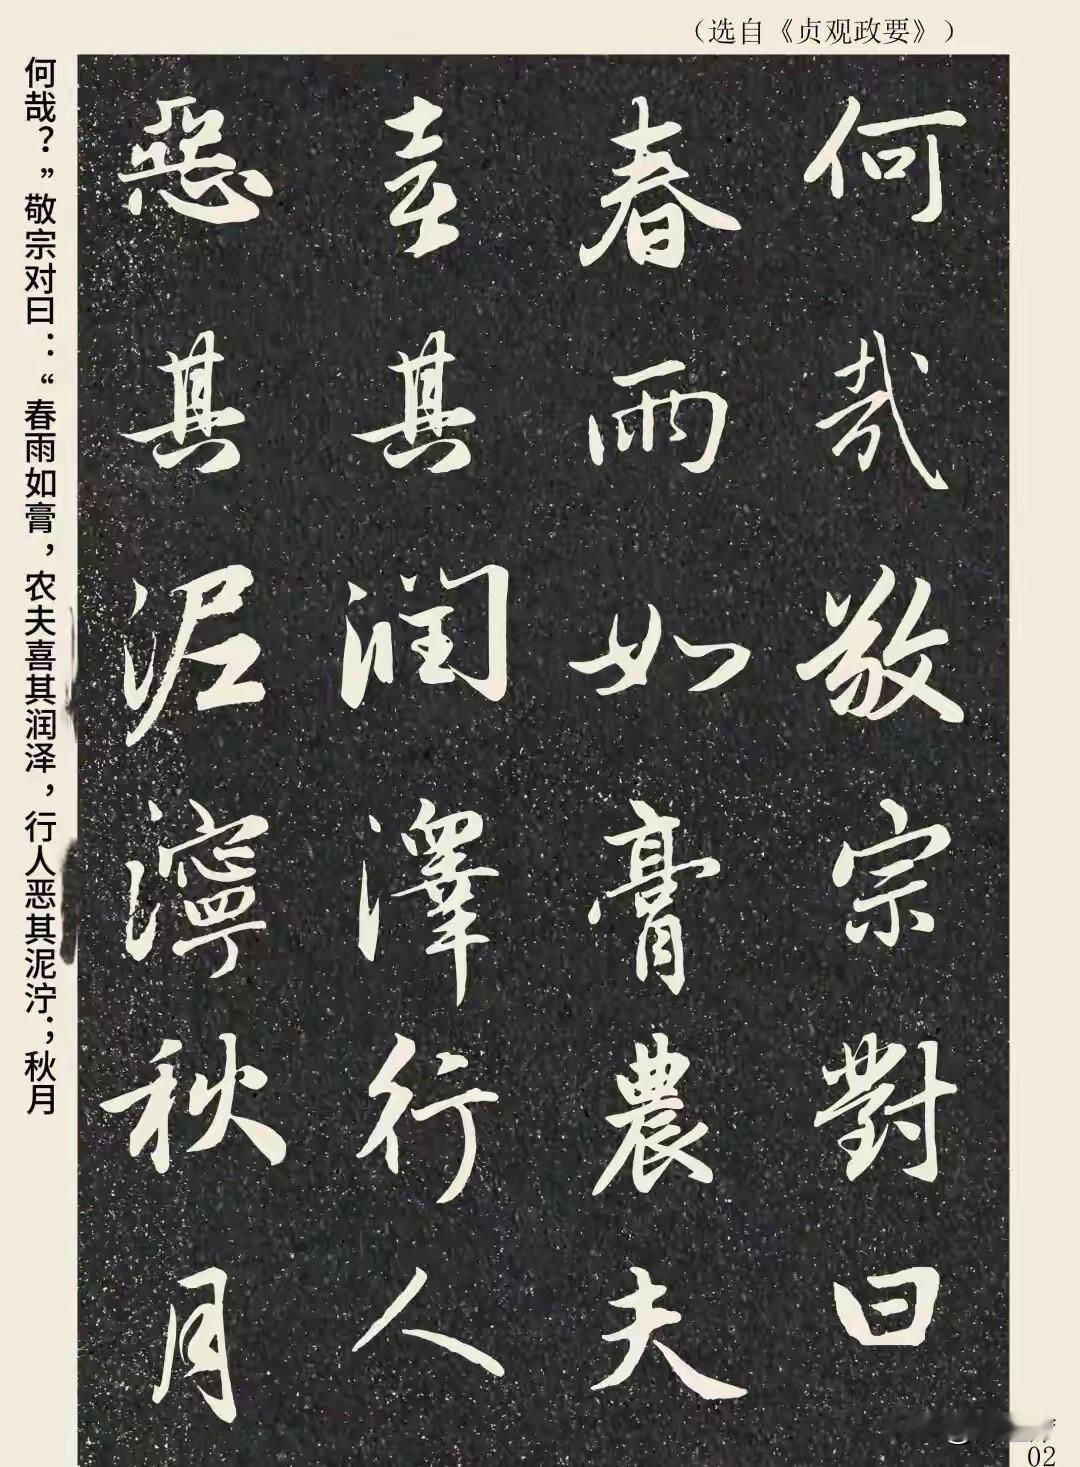 （选自《贞观政要》）
何哉敬宗對曰
春雨如膏農夫
喜其潤澤行人
惡其泥濘秋月
何哉？”敬宗对曰：“春雨如膏，农夫喜其润泽，行人恶其泥泞；秋月
02